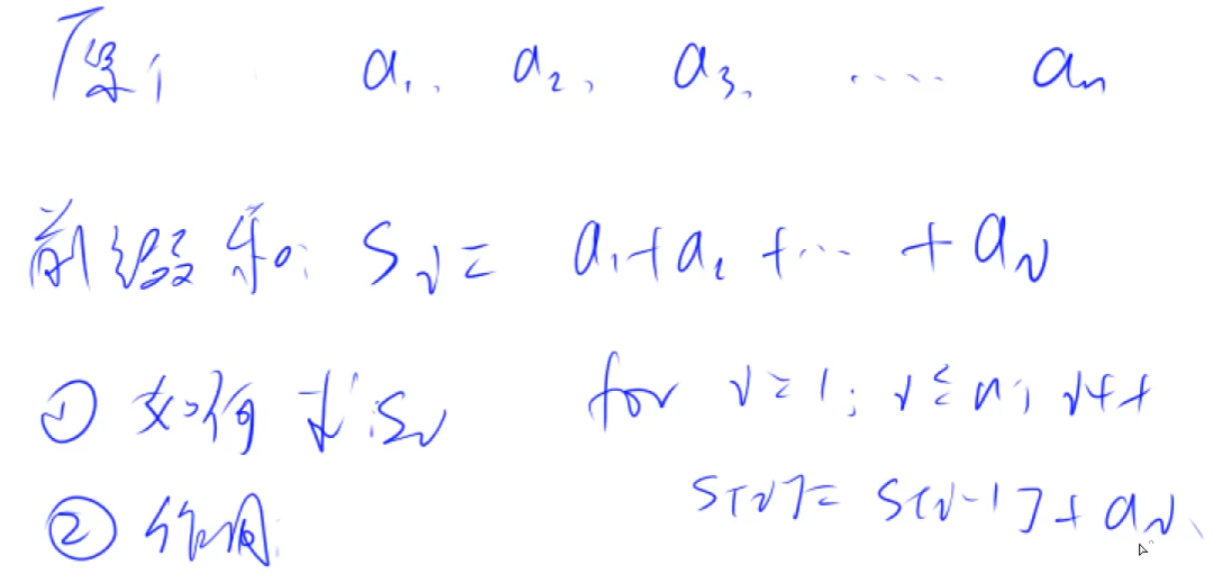 原: a₁, a₂, a₃, ‥‥ aₙ
前缀和: Sᵢ = a₁+a₂+⋯+aᵢ
① 如何求Sᵢ for i=1; i≤n; i++
S[i]= S[i-1]+aᵢ
② 作用